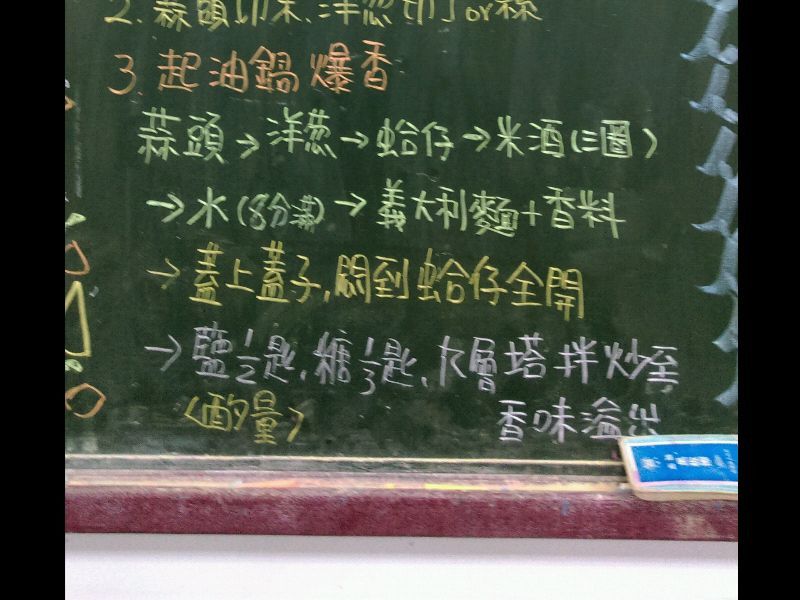 2. 蒜頭切末、洋葱切丁or絲
3. 起油鍋爆香
蒜頭→洋葱→蛤仔→米酒(三圈)
→水(8分滿)→義大利麵+香料
→蓋上蓋子,悶到蛤仔全開
→鹽1/2匙、糖1/3匙、九層塔拌炒至
<酌量> 香味溢出